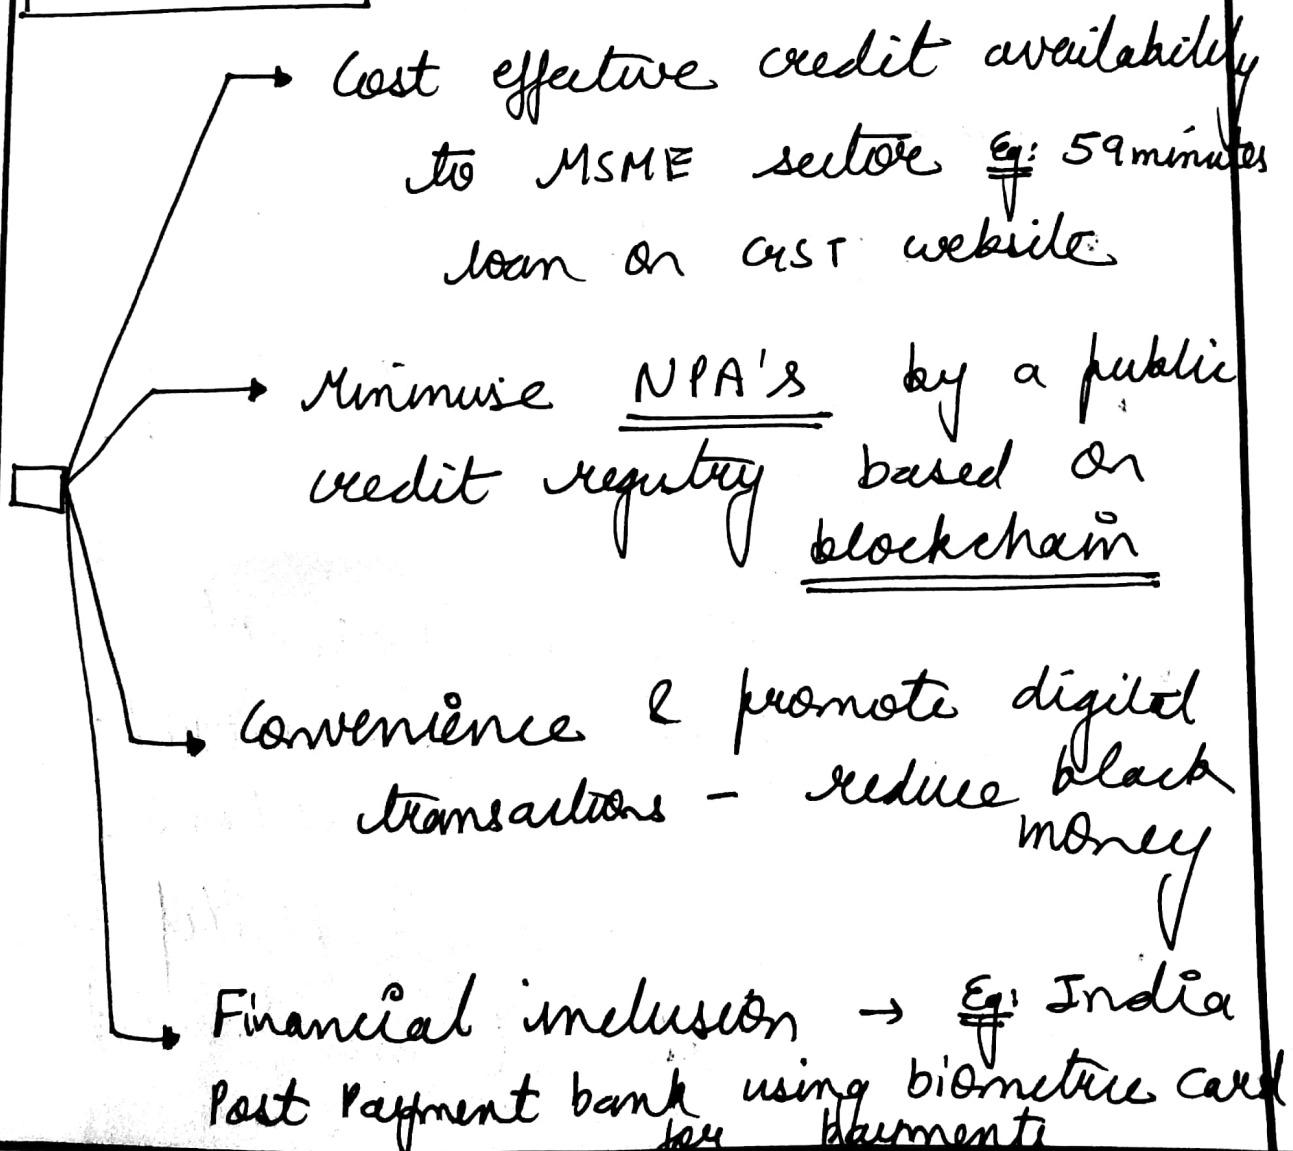 Cost effective credit availability
to MSME sector Eg: 59 minutes
loan on GST website
Minimise NPA's by a public
credit registry based on
blockchain
Convenience & promote digital
transactions - reduce black
money
Financial inclusion → Eg: India
Post Payment bank using biometric card
for payments